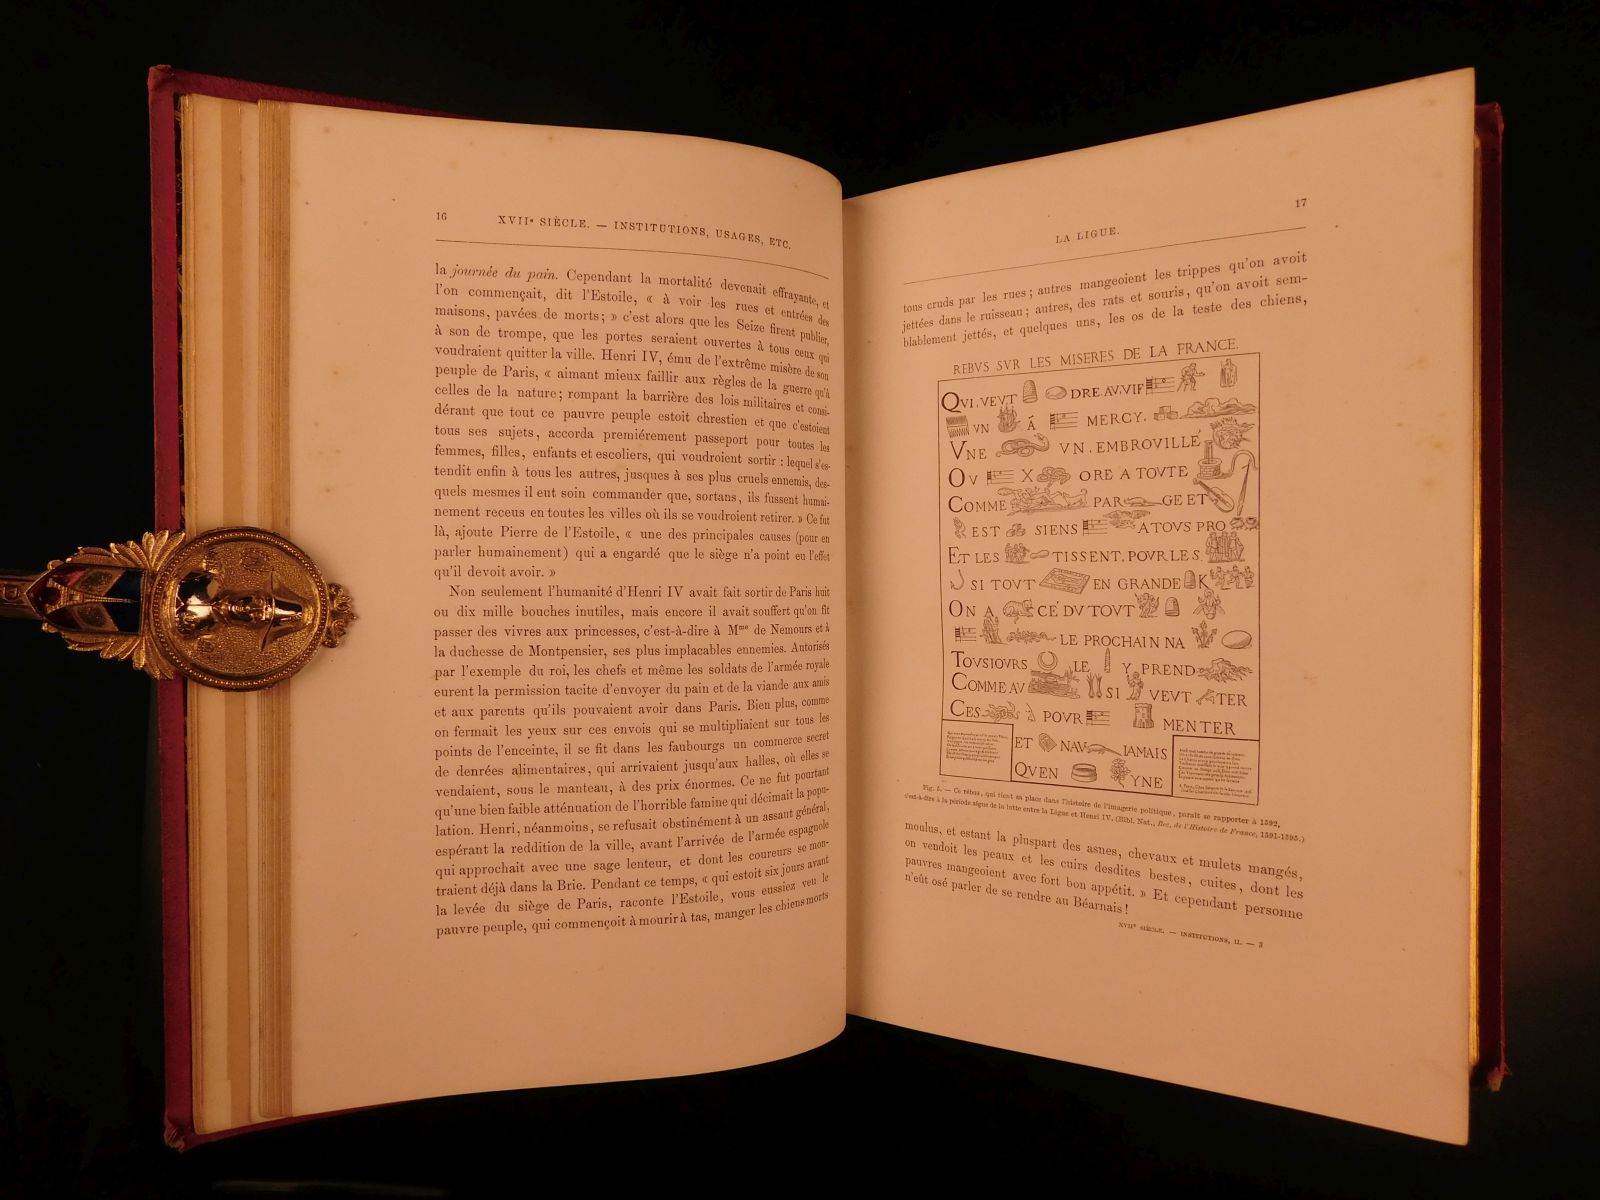 16 XVIIe SIÈCLE. — INSTITUTIONS, USAGES, ETC.
la journée du pain. Cependant la mortalité devenait effrayante, et
l'on commençait, dit l'Estoile, « à voir les rues et entrées des
maisons, pavées de morts; » c'est alors que les Seize firent publier,
à son de trompe, que les portes seraient ouvertes à tous ceux qui
voudraient quitter la ville. Henri IV, ému de l'extrême misère de son
peuple de Paris, « aimant mieux faillir aux règles de la guerre qu'à
celles de la nature; rompant la barrière des lois militaires et consi-
dérant que tout ce pauvre peuple estoit chrestien et que c'estoient
tous ses sujets, accorda premiérement passeport pour toutes les
femmes, filles, enfants et escoliers, qui voudroient sortir : lequel s'es-
tendit enfin à tous les autres, jusques à ses plus cruels ennemis, des-
quels mesmes il eut soin commander que, sortans, ils fussent humai-
nement receus en toutes les villes où ils se voudroient retirer. » Ce fut
là, ajoute Pierre de l'Estoile, « une des principales causes (pour en
parler humainement) qui a engardé que le siège n'a point eu l'effet
qu'il devoit avoir. »
Non seulement l'humanité d'Henri IV avait fait sortir de Paris huit
ou dix mille bouches inutiles, mais encore il avait souffert qu'on fit
passer des vivres aux princesses, c'est-à-dire à Mme de Nemours et à
la duchesse de Montpensier, ses plus implacables ennemies. Autorisés
par l'exemple du roi, les chefs et même les soldats de l'armée royale
eurent la permission tacite d'envoyer du pain et de la viande aux amis
et aux parents qu'ils pouvaient avoir dans Paris. Bien plus, comme
on fermait les yeux sur ces envois qui se multipliaient sur tous les
points de l'enceinte, il se fit dans les faubourgs un commerce secret
de denrées alimentaires, qui arrivaient jusqu'aux halles, où elles se
vendaient, sous le manteau, à des prix énormes. Ce ne fut pourtant
qu'une bien faible atténuation de l'horrible famine qui décimait la popu-
lation. Henri, néanmoins, se refusait obstinément à un assaut général,
espérant la reddition de la ville, avant l'arrivée de l'armée espagnole
qui approchait avec une sage lenteur, et dont les coureurs se mon-
traient déjà dans la Brie. Pendant ce temps, « qui estoit six jours avant
la levée du siège de Paris, raconte l'Estoile, vous eussiez veu le
pauvre peuple, qui commençoit à mourir à tas, manger les chiens morts
LA LIGUE. 17
tous cruds par les rues; autres mangeoient les trippes qu'on avoit
jettées dans le ruisseau; autres, des rats et souris, qu'on avoit sem-
blablement jettés, et quelques uns, les os de la teste des chiens,
REBVS SVR LES MISERES DE LA FRANCE.
QVI.VEVT DRE.AV.VIF
VN À MERCY.
VNE VN.EMBROVILLÉ
OV X ORE A TOVTE
COMME PAR GE ET
EST SIENS A TOVS PRO
ET LES TISSENT.POVR LES.
SI TOVT EN GRANDE K
ON A CÉ DV TOVT
LE PROCHAIN NA
TOVSIOVRS LE Y PREND
COMME AV SI VEVT TER
CES POVR MENTER
ET NAV IAMAIS
QVEN YNE
Fig. 5. — Ce rébus, qui tient sa place dans l'histoire de l'imagerie politique, paraît se rapporter à 1592,
c'est-à-dire à la période aiguë de la lutte entre la Ligue et Henri IV. (Bibl. Nat., Rec. de l'Histoire de France, 1591-1595.)
moulus, et estant la pluspart des asnes, chevaux et mulets mangés,
on vendoit les peaux et les cuirs desdites bestes, cuites, dont les
pauvres mangeoient avec fort bon appétit. » Et cependant personne
n'eût osé parler de se rendre au Béarnais!
XVIIe SIÈCLE. — INSTITUTIONS, II. — 3